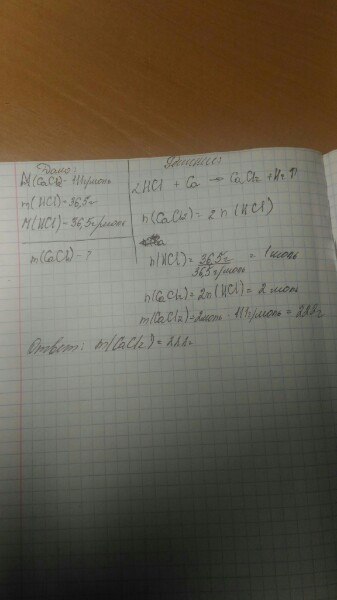 Дано:
M(CaCl2)-111г/моль
m(HCl)-36,5г
M(HCl)-36,5г/моль
m(CaCl)-?
Решение:
2HCl + Ca → CaCl2 + H2↑
n(CaCl2)=2n(HCl)
n(HCl)=36,5г/36,5г/моль=1моль
n(CaCl2)=2n(HCl)=2 моль
m(CaCl2)=2моль·111г/моль=222г
Ответ: m(CaCl2)=222г